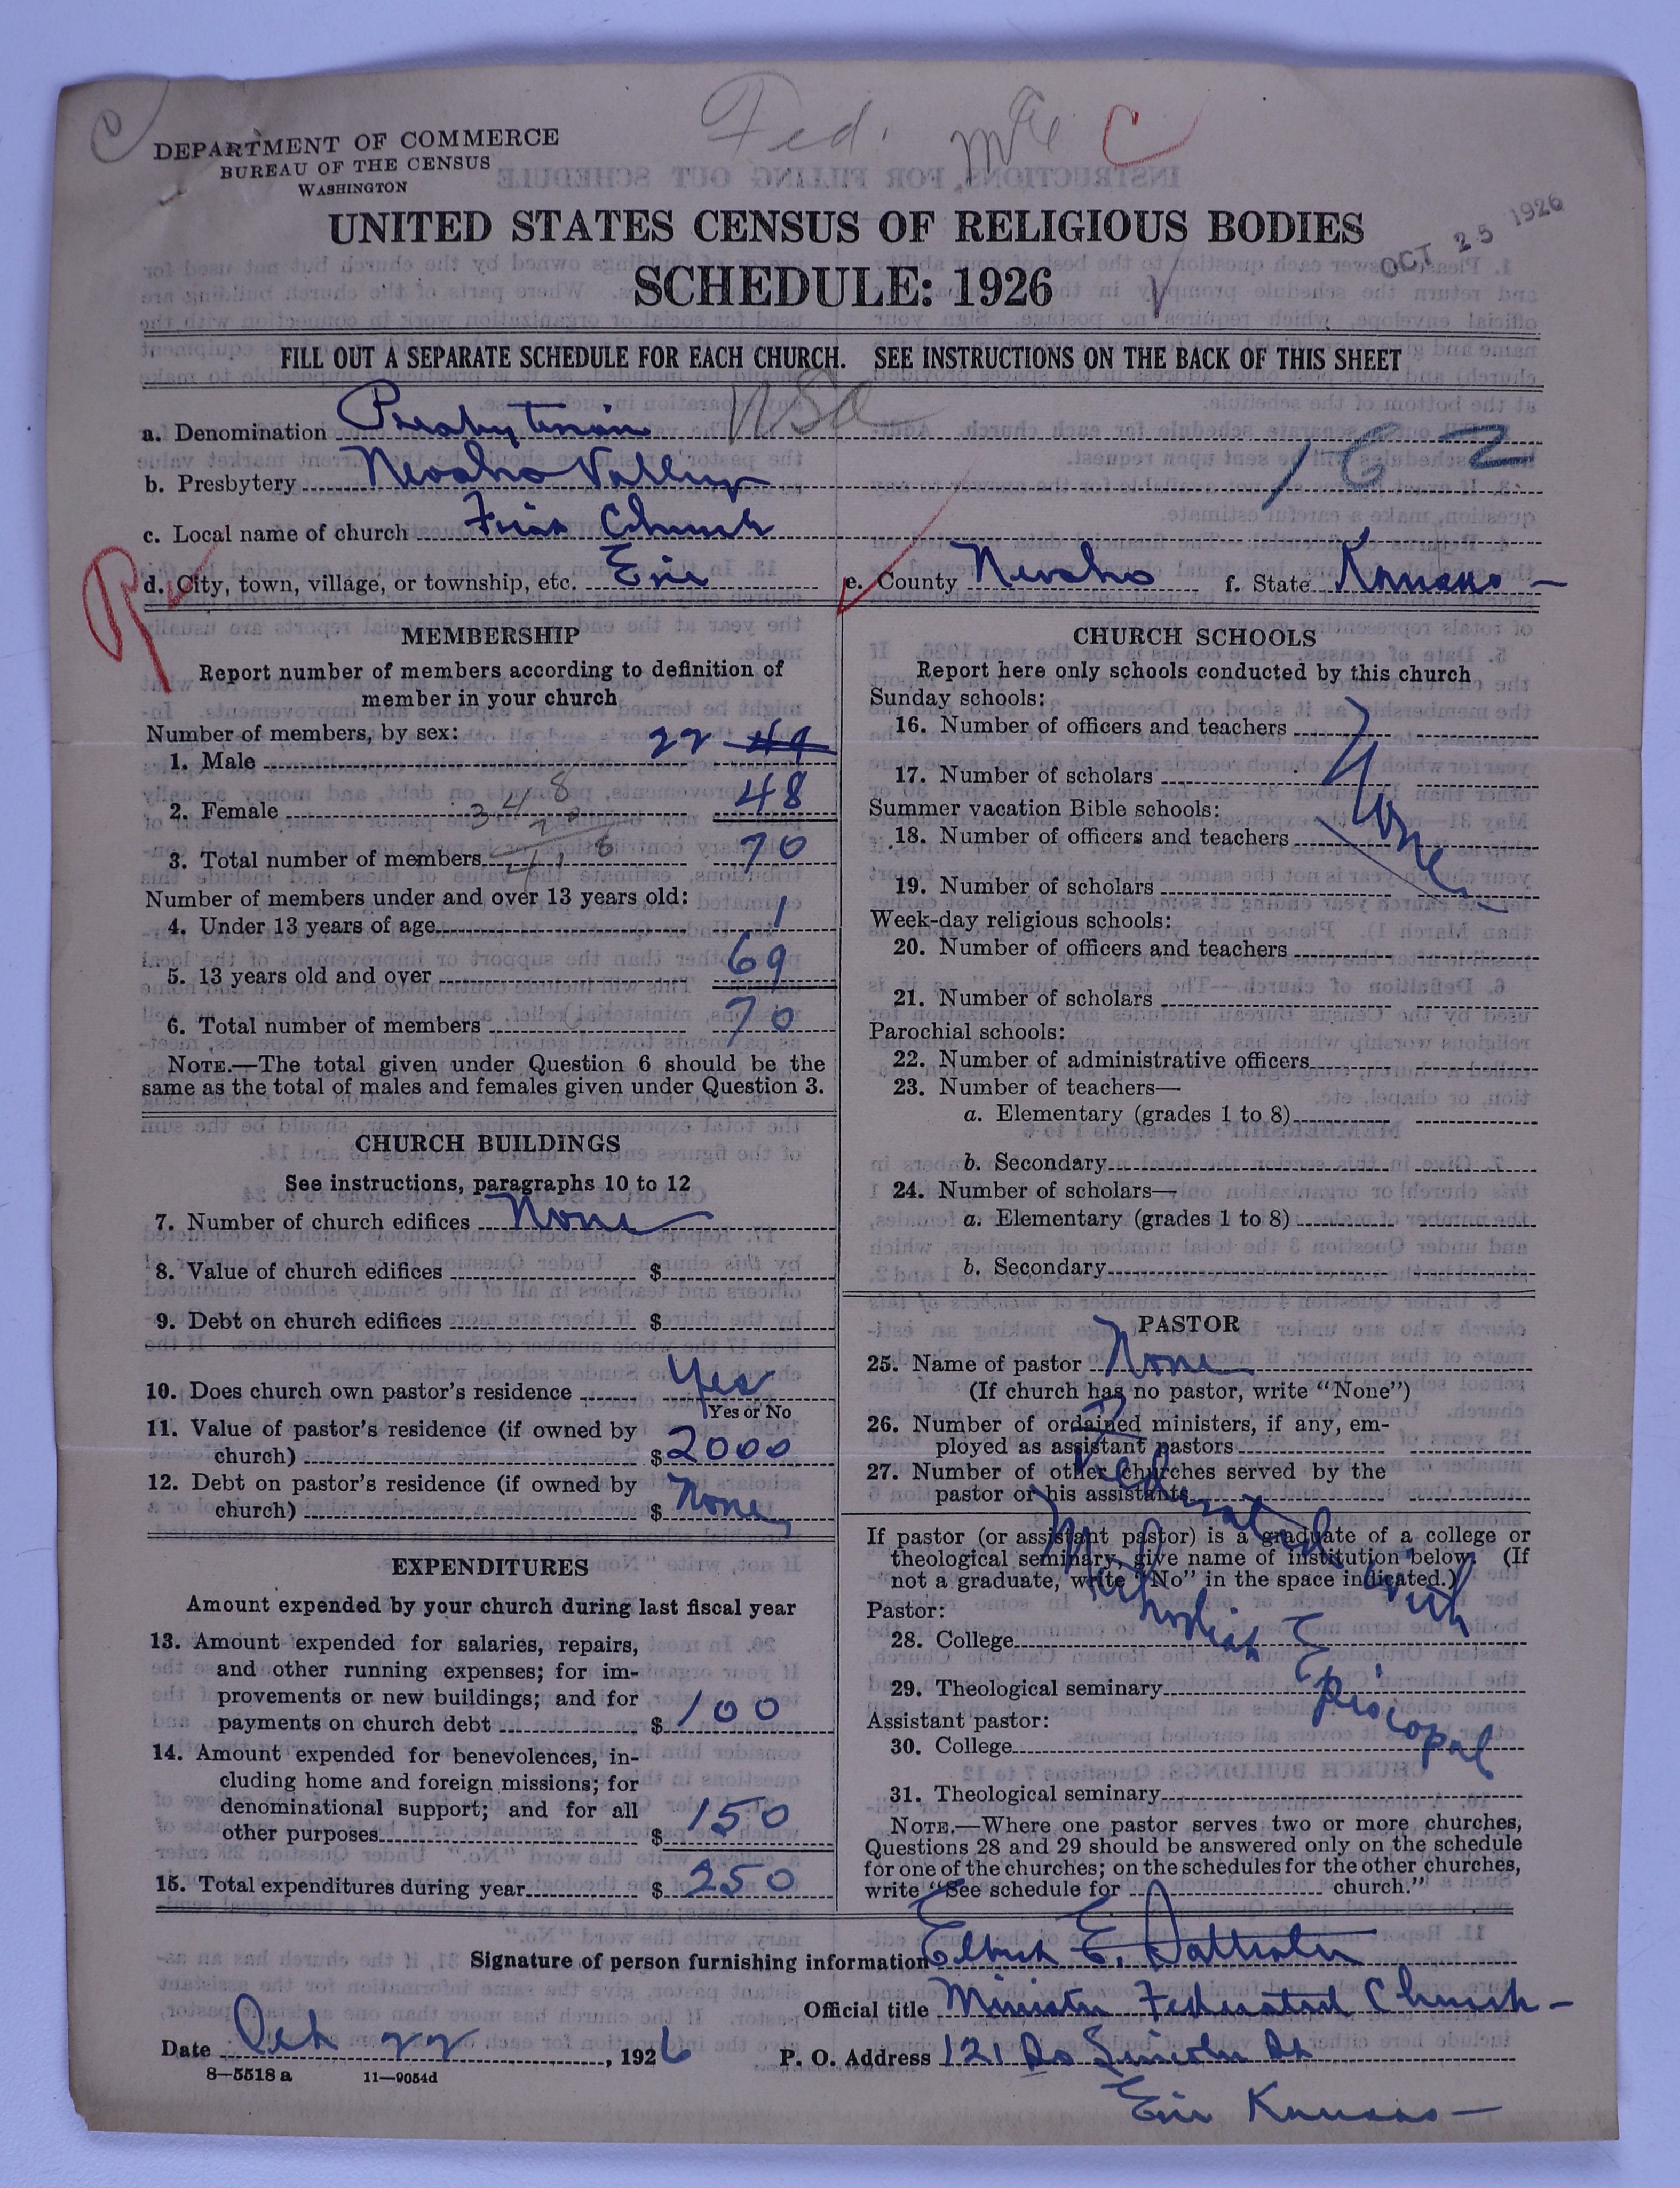 Fed. C
DEPARTMENT OF COMMERCE
BUREAU OF THE CENSUS
WASHINGTON
UNITED STATES CENSUS OF RELIGIOUS BODIES
OCT 25 1926
SCHEDULE: 1926
FILL OUT A SEPARATE SCHEDULE FOR EACH CHURCH. SEE INSTRUCTIONS ON THE BACK OF THIS SHEET
a. Denomination Presbyterian USA
162
b. Presbytery Neosho Valley
c. Local name of church First Church
d. City, town, village, or township, etc. Erie e. County Neosho f. State Kansas -
MEMBERSHIP
Report number of members according to definition of
member in your church
Number of members, by sex:
1. Male 22 49
2. Female 48
3. Total number of members 70
Number of members under and over 13 years old:
4. Under 13 years of age 1
5. 13 years old and over 69
6. Total number of members 70
NOTE.—The total given under Question 6 should be the
same as the total of males and females given under Question 3.
CHURCH BUILDINGS
See instructions, paragraphs 10 to 12
7. Number of church edifices None
8. Value of church edifices $
9. Debt on church edifices $
10. Does church own pastor's residence Yes
Yes or No
11. Value of pastor's residence (if owned by
church) $2000
12. Debt on pastor's residence (if owned by
church) $ None
EXPENDITURES
Amount expended by your church during last fiscal year
13. Amount expended for salaries, repairs,
and other running expenses; for im-
provements or new buildings; and for
payments on church debt $ 100
14. Amount expended for benevolences, in-
cluding home and foreign missions; for
denominational support; and for all
other purposes $ 150
15. Total expenditures during year $ 250
CHURCH SCHOOLS
Report here only schools conducted by this church
Sunday schools:
16. Number of officers and teachers
17. Number of scholars
None
Summer vacation Bible schools:
18. Number of officers and teachers
19. Number of scholars
Week-day religious schools:
20. Number of officers and teachers
21. Number of scholars
Parochial schools:
22. Number of administrative officers
23. Number of teachers—
a. Elementary (grades 1 to 8)
b. Secondary
24. Number of scholars—
a. Elementary (grades 1 to 8)
b. Secondary
PASTOR
25. Name of pastor None
(If church has no pastor, write "None")
26. Number of ordained ministers, if any, em-
ployed as assistant pastors
27. Number of other churches served by the
pastor or his assistants
Federated with
Methodist Episcopal
If pastor (or assistant pastor) is a graduate of a college or
theological seminary, give name of institution below. (If
not a graduate, write "No" in the space indicated.)
Pastor:
28. College
29. Theological seminary
Assistant pastor:
30. College
31. Theological seminary
NOTE.—Where one pastor serves two or more churches,
Questions 28 and 29 should be answered only on the schedule
for one of the churches; on the schedules for the other churches,
write "See schedule for church."
Signature of person furnishing information Elbert E.
Official title Minister Federated Church -
Date Oct 22, 1926 P. O. Address 121 So Lincoln St
8—5518 a 11—9054d
Erie Kansas -